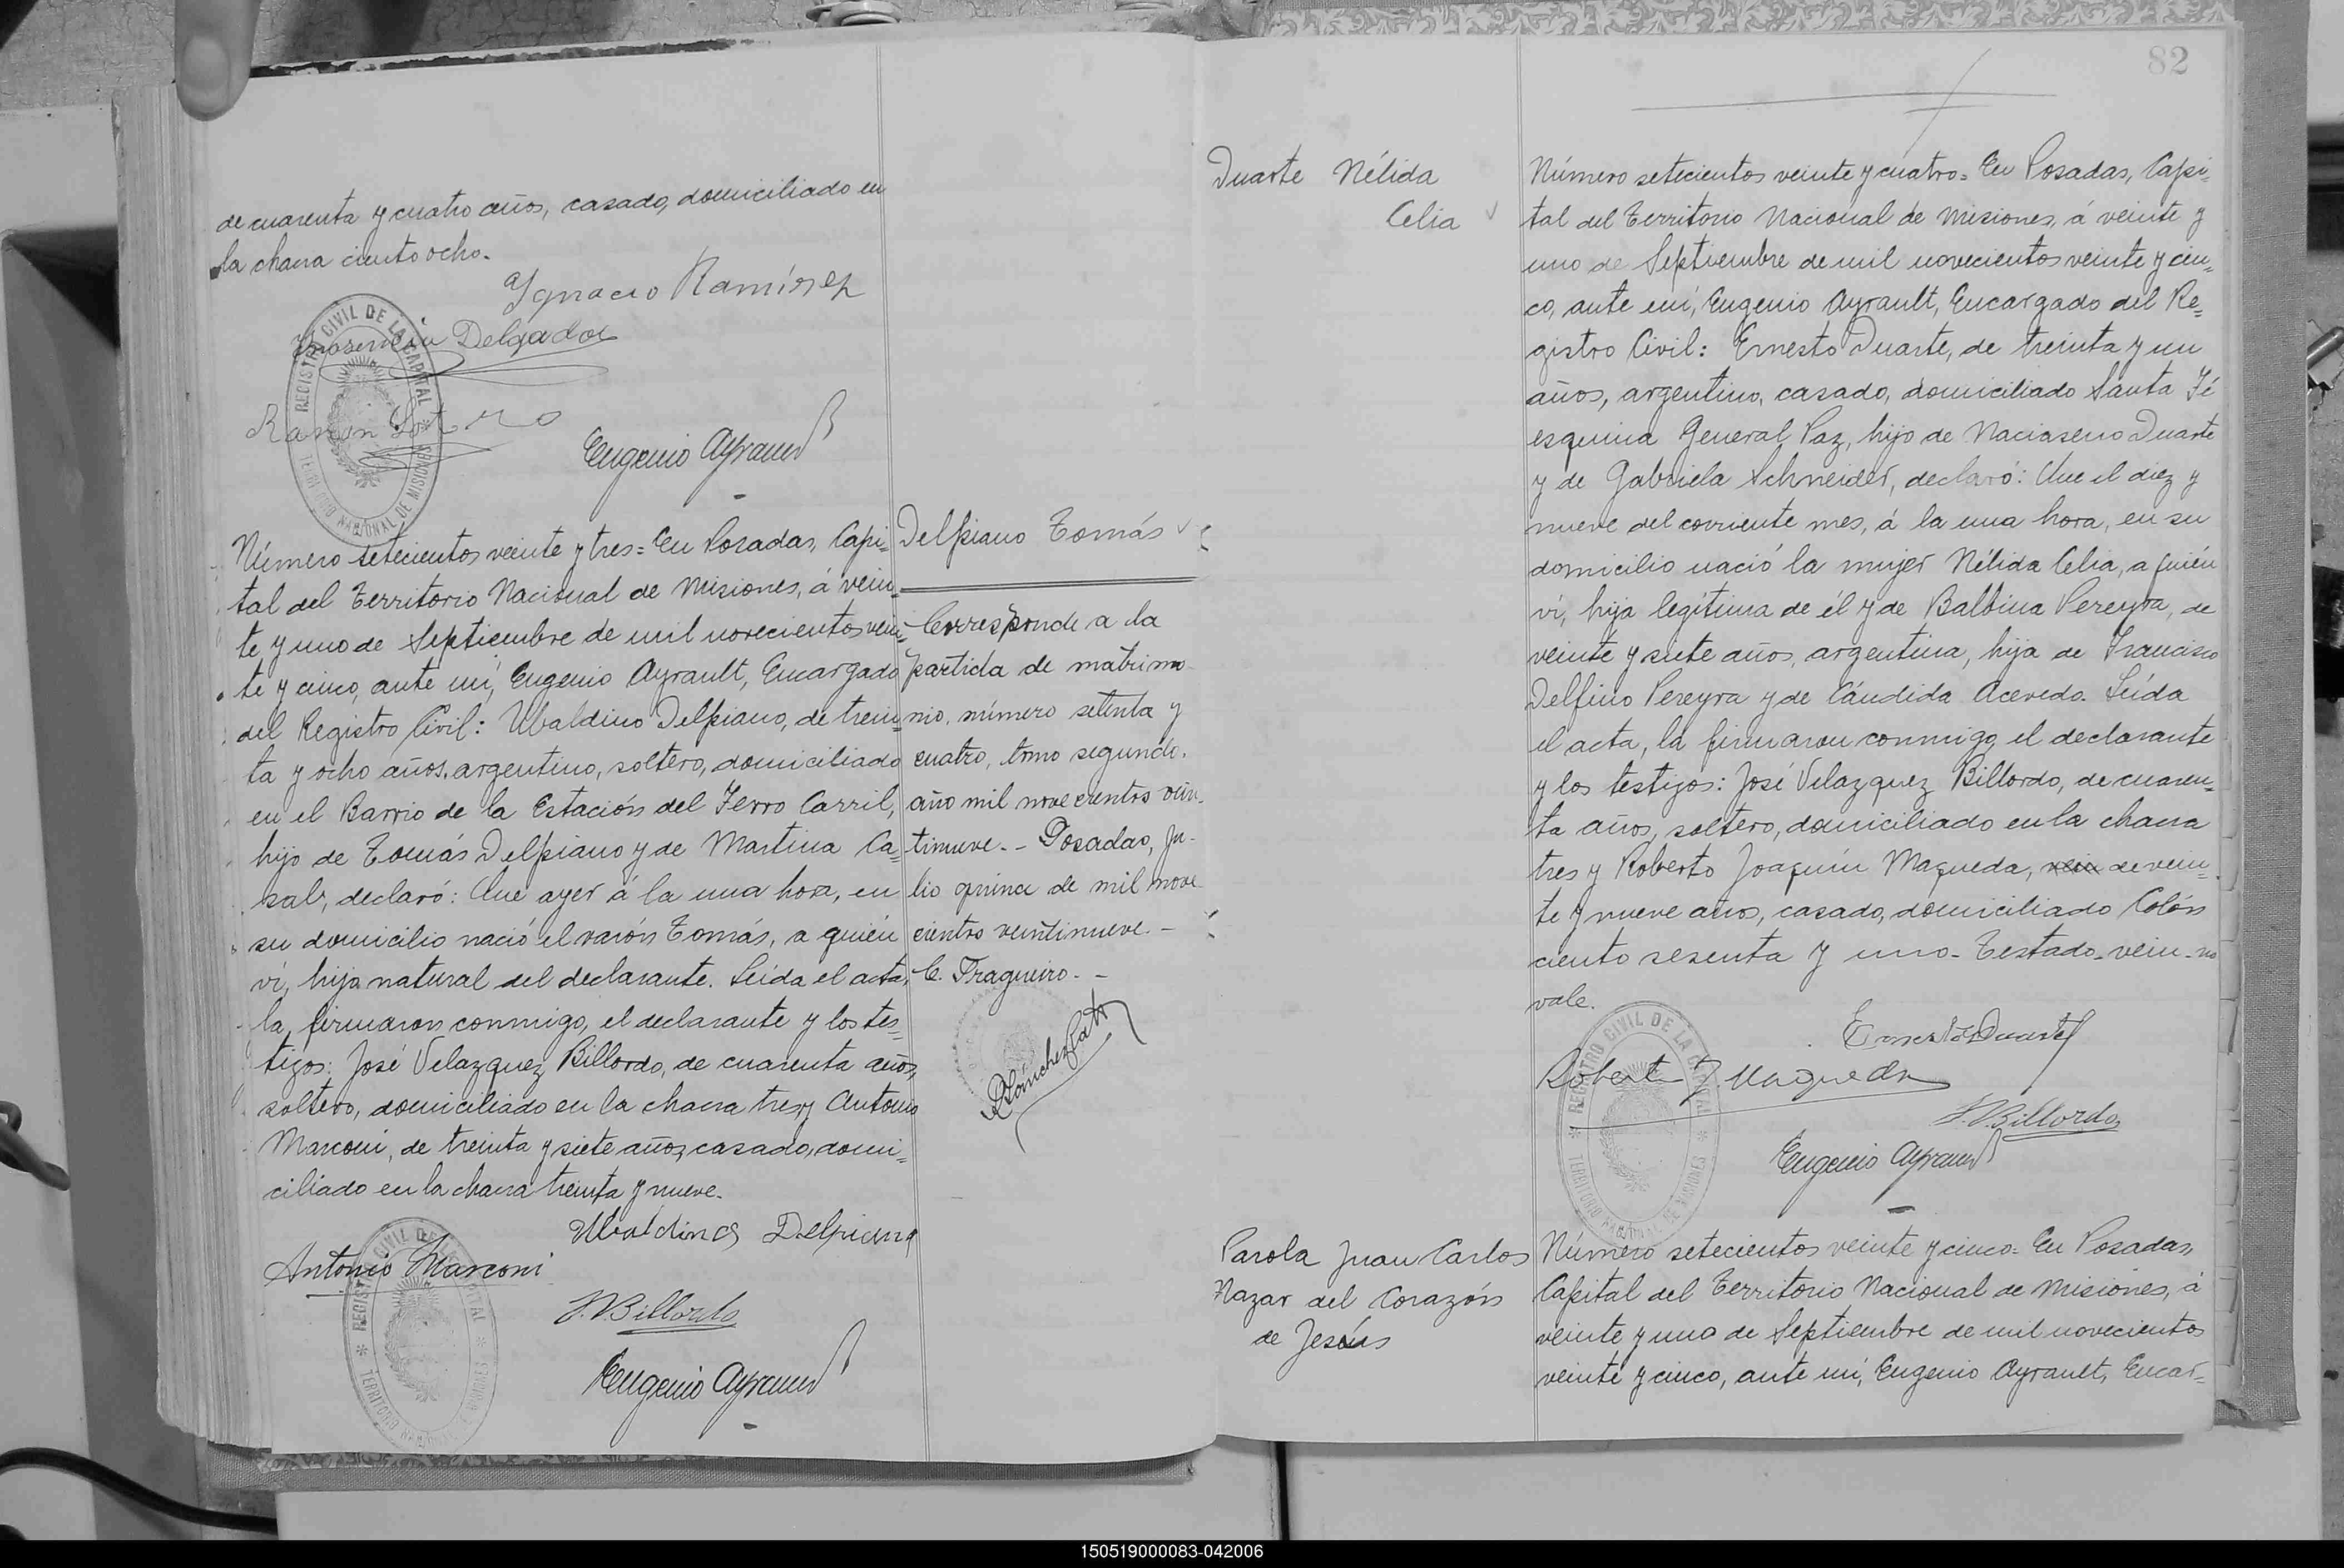 de cuarenta y cuatro años, casado, domiciliado en
la chacra ciento ocho.
Ygnacio Ramírez
Delgado
Ramon Sotero
Eugenio Ayrault
REGISTRO CIVIL DE LA CAPITAL
TERRITORIO NACIONAL DE MISIONES
Delpiano Tomás
Número setecientos veinte y tres= En Posadas, Capi=
tal del Territorio Nacional de Misiones, á vein=
te y uno de Septiembre de mil novecientos vein=
te y cinco, ante mí, Eugenio Ayrault, Encargado
del Registro Civil: Ubaldino Delpiano, de trein=
ta y ocho años, argentino, soltero, domiciliado
en el Barrio de la Estación del Ferro Carril,
hijo de Tomás Delpiano y de Martina Ca=
sals, declaró: Que ayer á la una hora, en
su domicilio nació el varón Tomás, a quién
ví, hijo natural del declarante. Leída el acta,
la firmaron conmigo, el declarante y los tes=
tigos: José Velazquez Billordo, de cuarenta años,
soltero, domiciliado en la chacra tres y Antonio
Marconi, de treinta y siete años, casado, domi=
ciliado en la chacra treinta y nueve.
Corresponde a la
partida de matrimo-
nio, número setenta y
cuatro, tomo segundo,
año mil novecientos vein-
tinueve.- Posadas, Ju-
lio quince de mil nove
cientos veintinueve.-
C. Fragueiro.-
Ubaldino Delpiano
Antonio Marconi
J. V. Billordo
Eugenio Ayrault
REGISTRO CIVIL DE LA CAPITAL
TERRITORIO NACIONAL DE MISIONES
82
Duarte Nélida
Celia
Número setecientos veinte y cuatro= En Posadas, Capi=
tal del Territorio Nacional de Misiones, á veinte y
uno de Septiembre de mil novecientos veinte y cin=
co, ante mí, Eugenio Ayrault, Encargado del Re=
gistro Civil: Ernesto Duarte, de treinta y un
años, argentino, casado, domiciliado Santa Fé
esquina General Paz, hijo de Duarte
y de Gabriela Schneider, declaró: Que el diez y
nueve del corriente mes, á la una hora, en su
domicilio nació la mujer Nélida Celia, a quién
ví, hija legítima de él y de Balbina Pereyra, de
veinte y siete años, argentina, hija de Francisco
Delfino Pereyra y de Cándida Acevedo. Leída
el acta, la firmaron conmigo, el declarante
y los testigos: José Velazquez Billordo, de cuaren=
ta años, soltero, domiciliado en la chacra
tres y Roberto Joaquín Maqueda, vein de vein=
te y nueve años, casado, domiciliado Colón
ciento sesenta y uno- Testado- vein- no
vale.
Ernesto Duarte
Roberto J. Maqueda
J. V. Billordo
Eugenio Ayrault
REGISTRO CIVIL DE LA CAPITAL
TERRITORIO NACIONAL DE MISIONES
Parola Juan Carlos
Nazar del Corazón
de Jesús
Número setecientos veinte y cinco= En Posadas,
Capital del Territorio Nacional de Misiones, á
veinte y uno de Septiembre de mil novecientos
veinte y cinco, ante mí, Eugenio Ayrault, Encar=
150519000083-042006